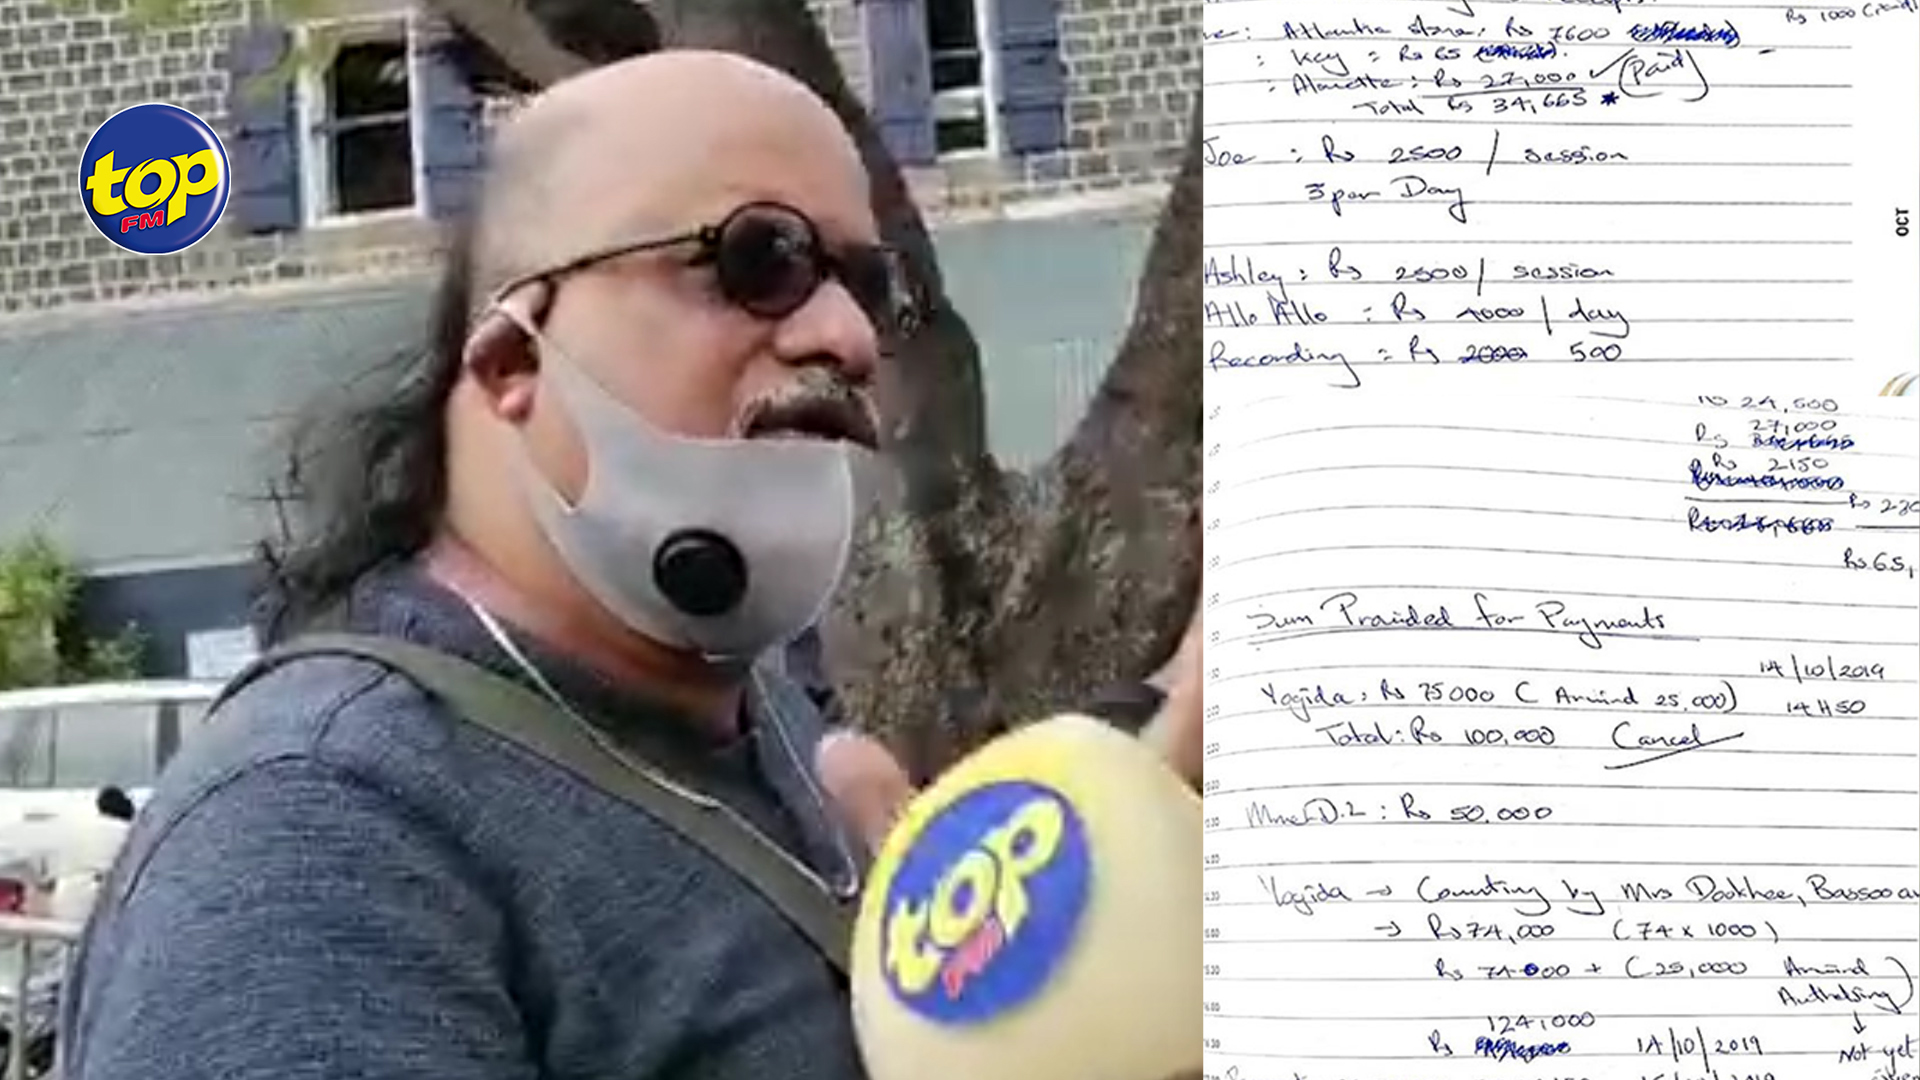 top
FM
top
FM
Rs 1000
: Atlantis store: Rs 7600
: Key = Rs 65
: Alouette : Rs 27,000 (Paid)
Total Rs 34,665 *
Joe : Rs 2500 / session
3 per Day
OCT
Ashley : Rs 2500 / session
Allo Allo = Rs 4000 / day
Recording = Rs 2000 500
24,500
27,000
Rs
Rs 2150
Rs 230
Rs 65,
Sum Provided for Payments
14/10/2019
Yogida : Rs 75000 ( Arvind 25,000) 14H50
Total : Rs 100,000 Cancel
Mme D.L : Rs 50,000
Yogida → Counting by Mrs Dookhee, Bassoo
→ Rs 74,000 (74 x 1000)
Rs 74000 + (25,000 Arvind
124,000
Rs 14/10/2019 Not yet